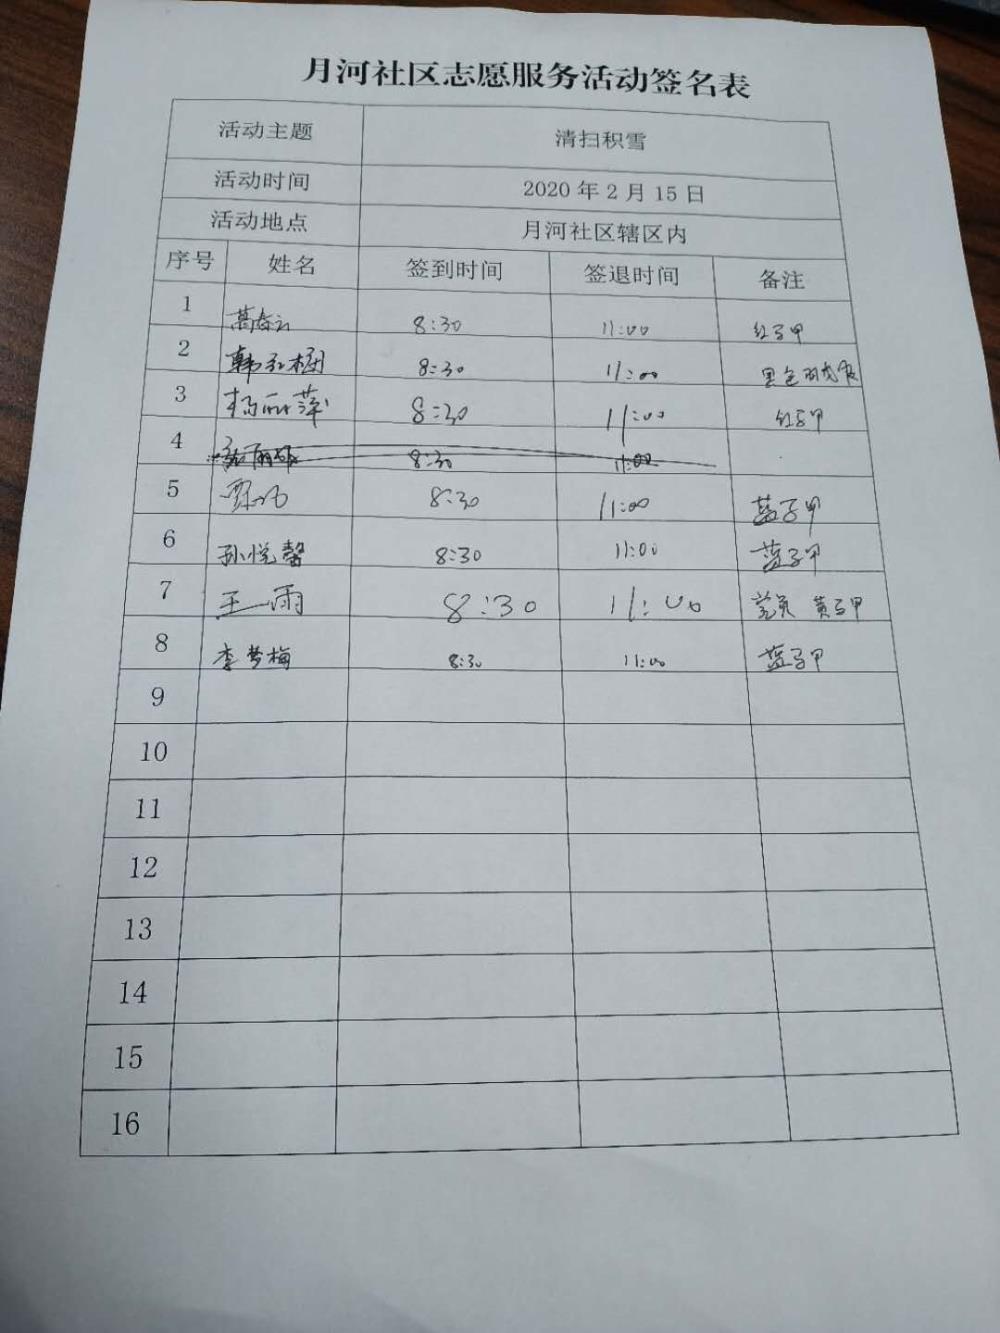 月河社区志愿服务活动签名表
活动主题 清扫积雪
活动时间 2020 年 2 月 15 日
活动地点 月河社区辖区内
序号 姓名 签到时间 签退时间 备注
1 葛春云 8:30 11:00 红马甲
2 韩 8:30 11:00 黑色羽绒服
3 杨丽萍 8:30 11:00 红马甲
4 8:30 11:00
5 8:30 11:00 蓝马甲
6 孙悦馨 8:30 11:00 蓝马甲
7 王雨 8:30 11:00 党员 黄马甲
8 李梦梅 8:30 11:00 蓝马甲
9
10
11
12
13
14
15
16